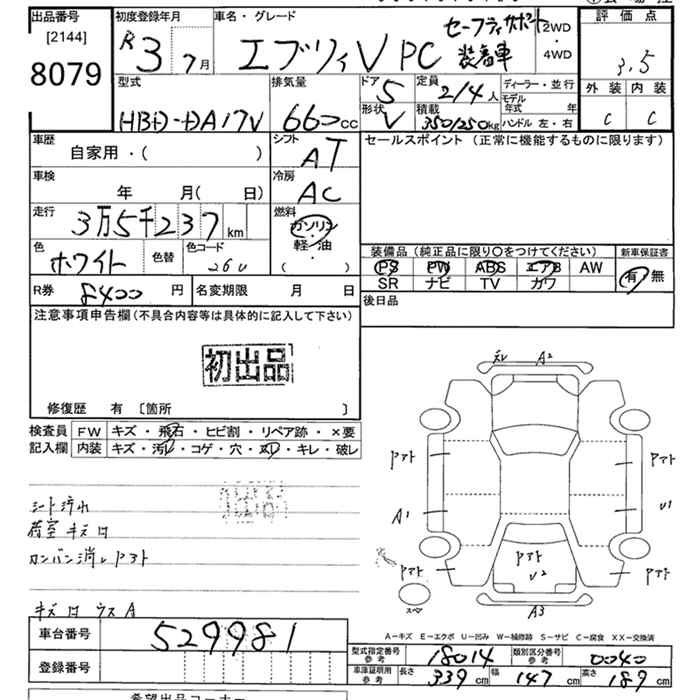 出品番号 初度登録年月 車名・グレード 評価点
[2144] R 3 7月 エブリイV PC セーフティサポート装着車 2WD 4WD 3.5
8079 外装 内装
型式 排気量 ドア 5 定員 2/4人 ディーラー・並行 C C
HBD-DA17V 660cc 形状 V 積載 350/250kg モデル年式 年 ハンドル 左・右
車歴 シフト セールスポイント (正常に機能するものに限ります)
自家用・( ) AT
車検 冷房
年 月( 日) AC
走行 燃料
3万5千237km ガソリン
色 色替 色コード 軽・油 装備品 (純正品に限り〇をつけてください) 新車保証書
ホワイト 26U ( ) PS PW ABS エアB AW 有・無
R券 8400円 名変期限 月 日 SR ナビ TV カワ
後日品
注意事項申告欄(不具合内容等は具体的に記入して下さい)
初出品
修復歴 有 [箇所 ]
検査員 FW キズ・飛石・ヒビ割・リペア跡・×要
記入欄 内装 キズ・汚レ・コゲ・穴・スリ・キレ・破レ
A2
アマト アマト
シート汚れ
A1 U1
荷室キズ凹
カンバン消しアマト
アマト アマト アマト
U2
スペア
キズ凹ウスA A3
A-キズ E-エクボ U-凹み W-補修跡 S-サビ C-腐食 XX-交換済
車台番号 529981
型式指定番号 参考 18014 類別区分番号 参考 0040
登録番号
車庫証明用 参考 長さ 339cm 幅 147cm 高さ 189cm
希望出品コーナー